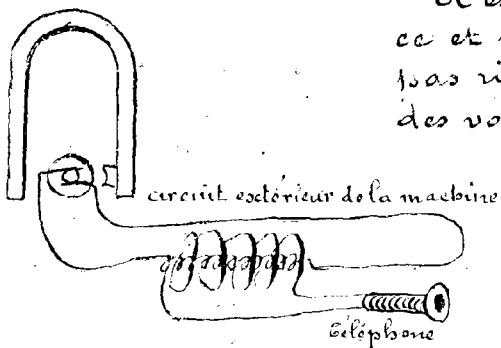 ce et
pas
des vo
circuit extérieur de la machine
Téléphone